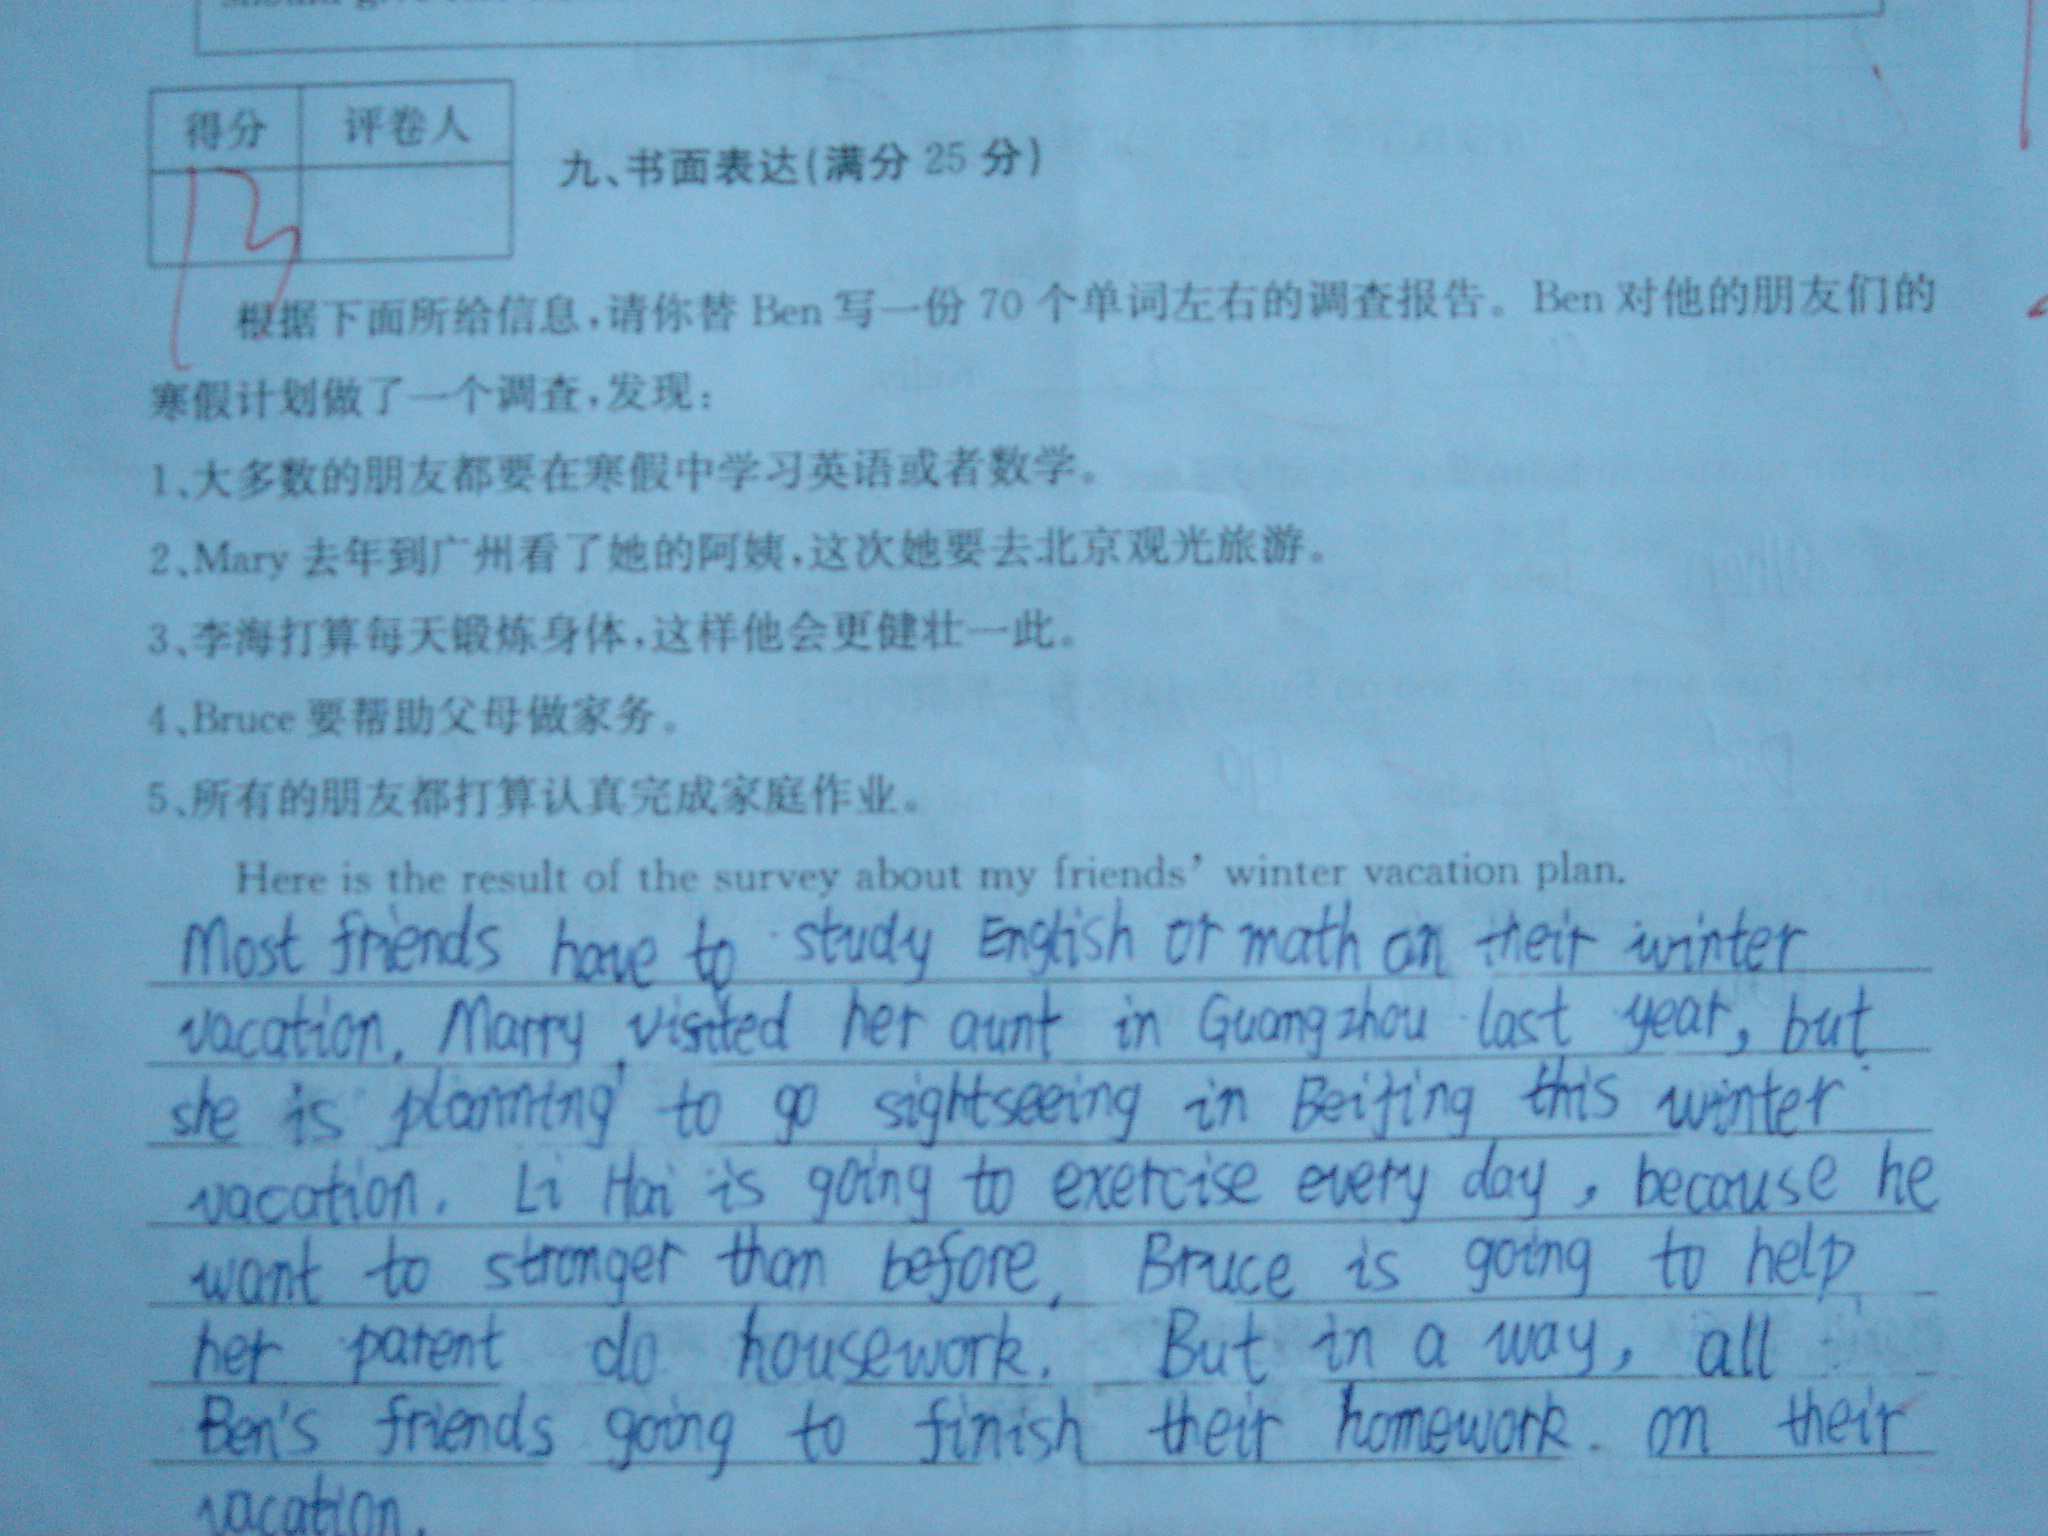 得分 评卷人
13
九、书面表达(满分 25 分)
根据下面所给信息,请你替 Ben 写一份 70 个单词左右的调查报告。Ben 对他的朋友们的
寒假计划做了一个调查,发现:
1、大多数的朋友都要在寒假中学习英语或者数学。
2、Mary 去年到广州看了她的阿姨,这次她要去北京观光旅游。
3、李海打算每天锻炼身体,这样他会更健壮一此。
4、Bruce 要帮助父母做家务。
5、所有的朋友都打算认真完成家庭作业。
Here is the result of the survey about my friends' winter vacation plan.
Most friends have to study English or math on their winter
vacation. Marry visited her aunt in Guangzhou last year, but
she is planning to go sightseeing in Beijing this winter
vacation. Li Hai is going to exercise every day, because he
want to stronger than before. Bruce is going to help
her parent do housework. But in a way, all
Ben's friends going to finish their homework. on their
vacation.